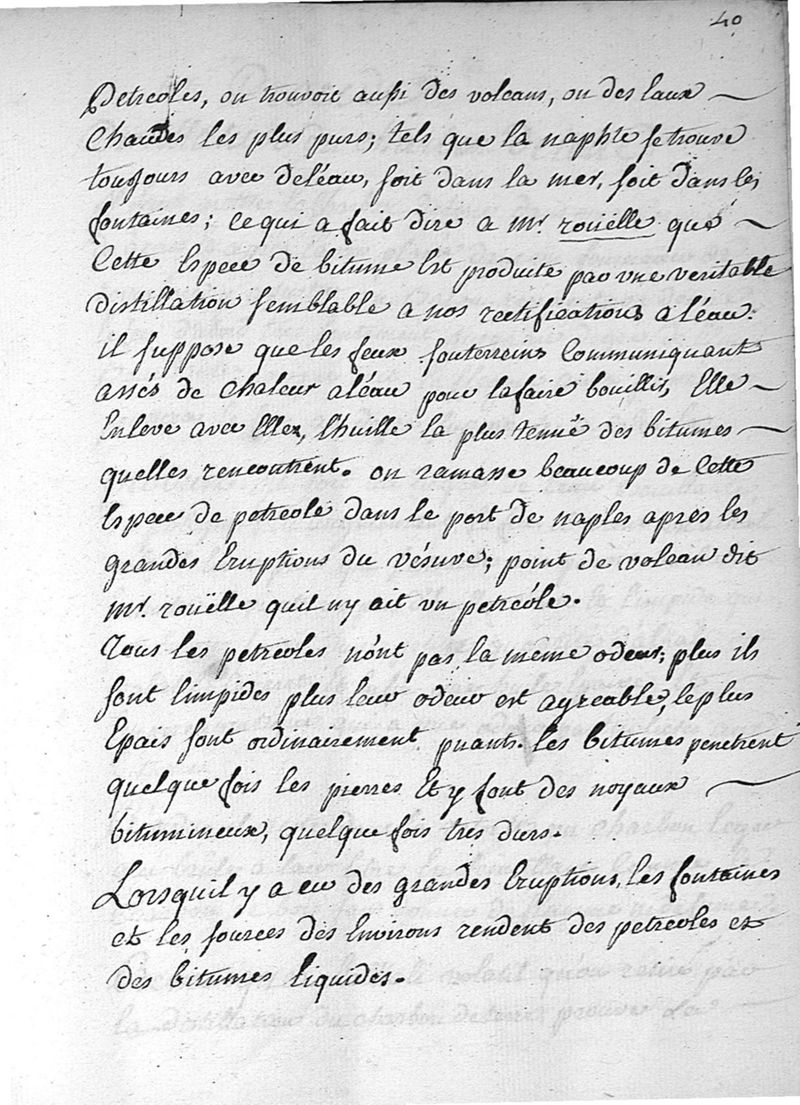 40
Petreoles, on trouvoit aussi des volcans, ou des Eaux
Chaudes les plus purs; tels que la naphte se trouve
toujours avec deléau, soit dans la mer, soit dans les
fontaines; ce qui a fait dire a mr. rouëlle que
Cette Espece de bitume Est produite par une veritable
distillation semblable a nos rectifications a léau.
il suppose que les feux souterreins Communiquant
assés de chaleur aléau pour lafaire bouillir, Elle
Enleve avec Elles, l'huille la plus tenuë des bitumes
quelles rencontrent. on ramasse beaucoup de Cette
Espece de petreole dans le port de naples après les
grandes Eruptions du vésuve; point de volcan dit
mr. rouëlle quil ny ait un petreóle.
Tous les petreoles n'ont pas la même odeur; plus ils
sont limpides plus leur odeur est agreable, le plus
Epais sont ordinairement puants. les bitumes penetrent
quelque fois les pierres Et y font des noyaux
bitumineux, quelque fois tres durs.
Lorsquil y a eu des grandes Eruptions, les fontaines
et les sources des Environs rendent des petreoles et
des bitumes liquides.